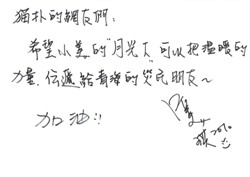 猫朴的網友們:
希望小美的"月光下"可以把溫暖的
力量,伝遞給青海的災民朋友~
加油!!
2010